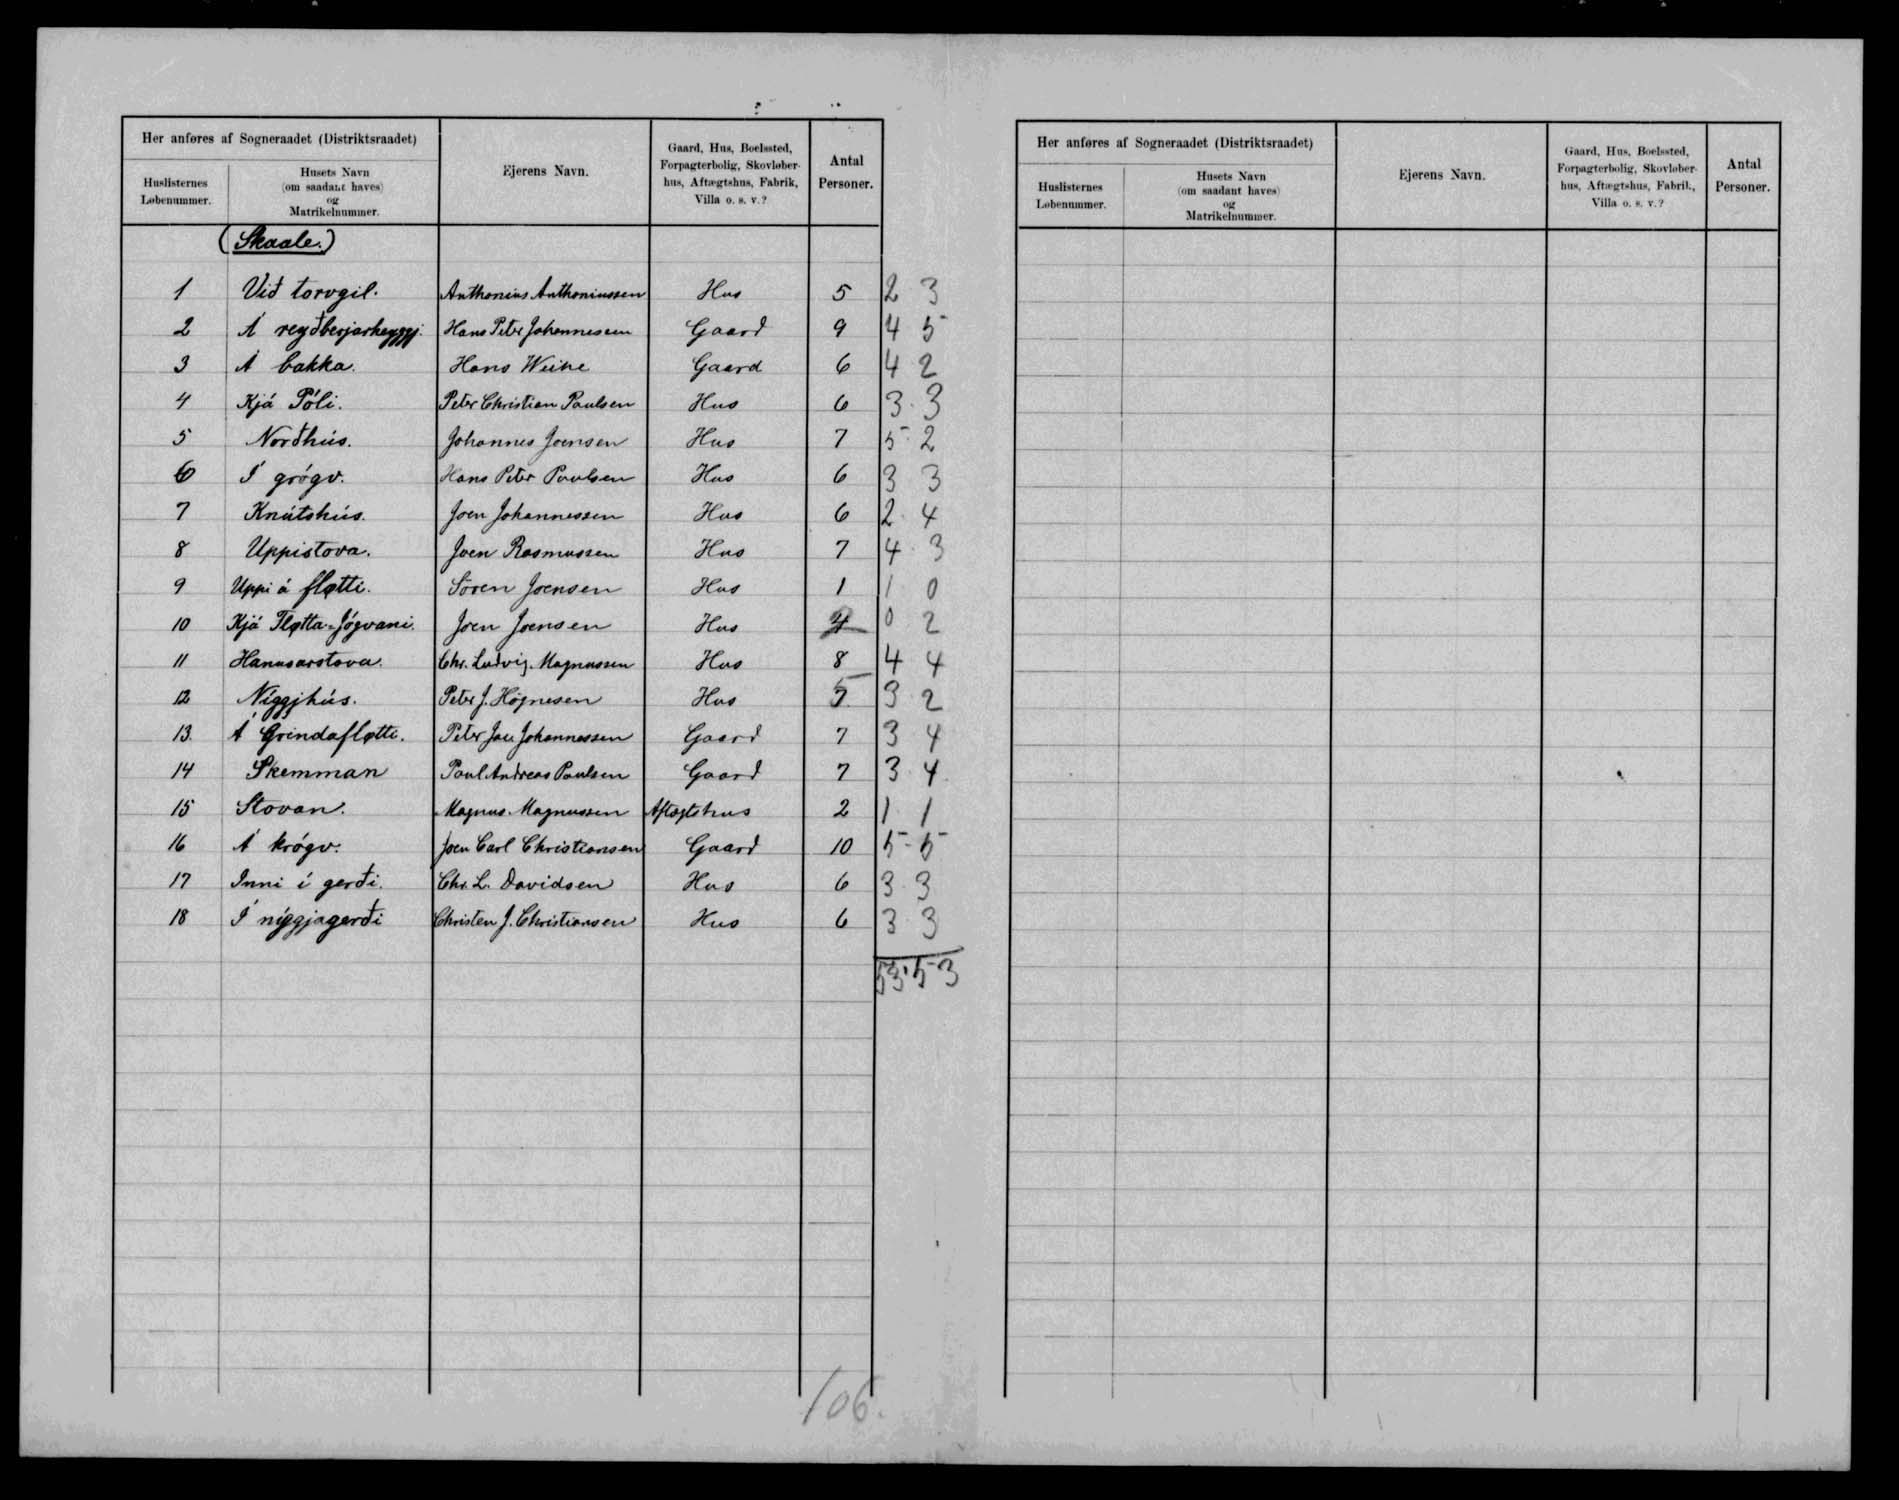 Her anføres af Sogneraadet (Distriktsraadet)
Huslisternes Løbenummer.
Husets Navn (om saadant haves) og Matrikelnummer.
Ejerens Navn.
Gaard, Hus, Boelssted, Forpagterbolig, Skovløberhus, Aftægtshus, Fabrik, Villa o. s. v.?
Antal Personer.
(Skaale.)
1 Við torvgil. Anthonius Anthoniussen Hus 5 2 3
2 Á reyðberjarheyggj. Hans Peter Johannessen Gaard 9 4 5
3 Á bakka. Hans Weihe Gaard 6 4 2
4 Kjá Póli. Peter Christian Paulsen Hus 6 3 3
5 Norðhús. Johannes Joensen Hus 7 5 2
6 Í grógv. Hans Peter Poulsen Hus 6 3 3
7 Knútshús. Joen Johannessen Hus 6 2 4
8 Uppistova. Joen Rasmussen Hus 7 4 3
9 Uppi á fløtti. Sören Joensen Hus 1 1 0
10 Kjá Fløtta-Jógvani. Joen Joensen Hus 0 2
11 Hanusarstova. Chr. Ludvig Magnussen Hus 8 4 4
12 Níggjhús. Peter J. Højnesen Hus 5 3 2
13. Á Grindafløtti. Peter Jac Johannessen Gaard 7 3 4
14 Skemman Poul Andreas Poulsen Gaard 7 3 4
15 Stovan. Magnus Magnussen Aftægtshus 2 1 1
16 Á krógv. Joen Carl Christiansen Gaard 10 5 5
17 Inni í gerði. Chr. L. Davidsen Hus 6 3 3
18 Í nýggjagerði Christen J. Christiansen Hus 6 3 3
53 53
106.
Her anføres af Sogneraadet (Distriktsraadet)
Huslisternes Løbenummer.
Husets Navn (om saadant haves) og Matrikelnummer.
Ejerens Navn.
Gaard, Hus, Boelssted, Forpagterbolig, Skovløberhus, Aftægtshus, Fabrik, Villa o. s. v.?
Antal Personer.